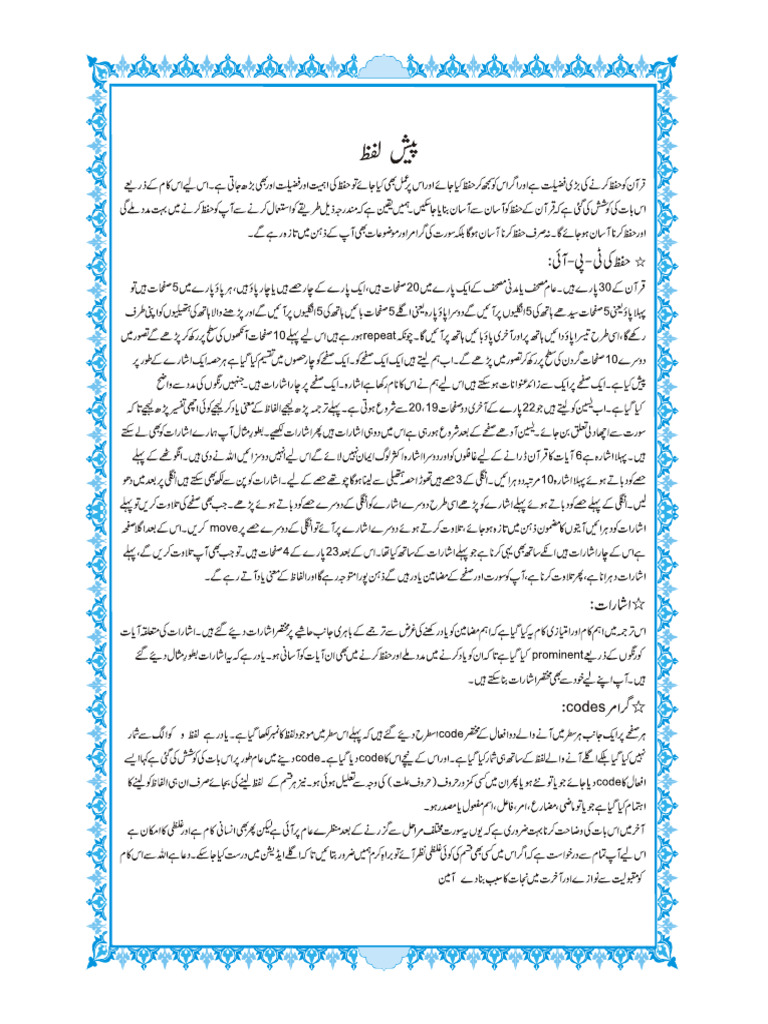 پیش لفظ
قرآن کو حفظ کرنے کی بڑی فضیلت ہے اور اگر اس کو سمجھ کر حفظ کیا جائے اور اس پر عمل بھی کیا جائے تو حفظ کی اہمیت اور فضیلت اور بھی بڑھ جاتی ہے۔ اس لیے اس کام کے ذریعے
اس بات کی کوشش کی گئی ہے کہ قرآن کے حفظ کو آسان سے آسان بنایا جا سکیں۔ ہمیں یقین ہے کہ مندرجہ ذیل طریقے کو استعمال کرنے سے آپ کو حفظ کرنے میں بہت مدد ملے گی
اور حفظ کرنا آسان ہو جائے گا۔ نہ صرف حفظ کرنا آسان ہو گا بلکہ سورت کی گرامر اور موضوعات بھی آپ کے ذہن میں تازہ رہے گے۔
☆ حفظ کی ٹی-پی-آئی:
قرآن کے 30 پارے ہیں۔ عام مصحف یا مدنی مصحف کے ایک پارے میں 20 صفحات ہیں، ایک پارے کے چار حصے ہیں یا چار پاؤ ہیں، ہر پاؤ پارے میں 5 صفحات ہیں تو
پہلا پاؤ یعنی 5 صفحات سیدھے ہاتھ کی 5 انگلیوں پر آئیں گے دوسرا پاؤ پارہ یعنی اگلے 5 صفحات بائیں ہاتھ کی 5 انگلیوں پر آئیں گے اور پڑھنے والا ہاتھ کی ہتھیلیوں کو اپنی طرف
رکھے گا، اسی طرح تیسرا پاؤ دائیں ہاتھ پر اور آخری پاؤ بائیں ہاتھ پر آئیں گا۔ چونکہ repeat ہو رہے ہیں اس لیے پہلے 10 صفحات آنکھوں کی سطح پر رکھ کر پڑھے گے تصور میں
دوسرے 10 صفحات گردن کی سطح پر رکھ کر تصور میں پڑھے گے۔ اب ہم لیتے ہیں ایک ایک صفحے کو۔ ایک صفحے کو چار حصوں میں تقسیم کیا گیا ہے ہر حصہ ایک اشارے کے طور پر
پیش کیا ہے۔ ایک صفحے پر ایک سے زائد عنوانات ہو سکتے ہیں اس لیے ہم نے اس کا نام رکھا ہے اشارہ۔ ایک صفحے پر چار اشارات ہیں۔ جنہیں رنگوں کی مدد سے واضح
کیا گیا ہے۔ اب یٰسین کو لیتے ہیں جو 22 پارے کے آخری دو صفحات 20،19 سے شروع ہوتی ہے۔ پہلے ترجمہ پڑھ لیجیے الفاظ کے معنی یاد کر لیجیے کوئی اچھی تفسیر پڑھ لیجیے تاکہ
سورت سے اچھا دلی تعلق بن جائے۔ یٰسین آدھے صفحے کے بعد شروع ہو رہی ہے اس میں دو ہی اشارات ہیں پھر اشارات لکھیے۔ بطور مثال آپ ہمارے اشارات کو بھی لے سکتے
ہیں۔ پہلا اشارہ ہے 6 آیات کا قرآن ڈرانے کے لیے غافلوں کو اور دوسرا اشارہ اکثر لوگ ایمان نہیں لائے گے اس لیے انہیں دو سزائیں اللہ نے دی ہیں۔ انگوٹھے کے پہلے
حصے کو دباتے ہوئے پہلا اشارہ 10 مرتبہ دوہرائیں۔ انگلی کے 3 حصے ہیں تھوڑا حصہ ہتھیلی سے لینا ہو گا چوتھے حصے کے لیے۔ اشارات کو پن سے لکھ بھی سکتے ہیں انگلی پر بعد میں دھو
لیں۔ انگلی کے پہلے حصے کو دباتے ہوئے پہلے اشارے کو پڑھے اسی طرح دوسرے اشارے کو انگلی کے دوسرے حصے کو دباتے ہوئے پڑھے۔ جب بھی صفحے کی تلاوت کریں تو پہلے
اشارات کو دہرائیں آیتوں کا مضمون ذہن میں تازہ ہو جائے، تلاوت کرتے ہوئے دوسرے اشارے پر آئے تو انگلی کے دوسرے حصے پر move کریں۔ اس کے بعد اگلا صفحہ
ہے اس کے چار اشارات ہیں انکے ساتھ بھی، یہی کرنا ہے جو پہلے اشارات کے ساتھ کیا تھا۔ اس کے بعد 23 پارے کے 4 صفحات ہیں۔ تو جب بھی آپ تلاوت کریں گے، پہلے
اشارات دہرانا ہے، پھر تلاوت کرنا ہے، آپ کو سورت اور صفحے کے مضامین یاد رہیں گے ذہن پورا متوجہ رہے گا اور الفاظ کے معنی یاد آتے رہے گے۔
☆ اشارات:
اس ترجمہ میں اہم کام اور امتیازی کام یہ کیا گیا ہے کہ اہم مضامین کو یاد رکھنے کی غرض سے ترجمے کے باہری جانب حاشیے پر مختصر اشارات دیئے گئے ہیں۔ اشارات کی متعلقہ آیات
کو رنگوں کے ذریعے prominent کیا گیا ہے تا کہ ان کو یاد کرنے میں مدد ملے اور حفظ کرنے میں بھی ان آیات کو آسانی ہو۔ یاد رہے کہ یہ اشارات بطور مثال دیئے گئے
ہیں۔ آپ اپنے لیے خود سے بھی مختصر اشارات بنا سکتے ہیں۔
☆ گرامر codes:
ہر صفحے پر ایک جانب ہر سطر میں آنے والے دو افعال کے مختصر code اسطرح دیئے گئے ہیں کہ پہلے اس سطر میں موجود لفظ کا نمبر لکھا گیا ہے۔ یاد رہے لفظ و کو الگ سے شمار
نہیں کیا گیا بلکے اگلے آنے والے لفظ کے ساتھ ہی شمار کیا گیا ہے۔ اور اس کے نیچے اس کا code دیا گیا ہے۔ code دینے میں عام طور پر اس بات کی کوشش کی گئی ہے کہ ایسے
افعال کا code دیا جائے جو یا تو نئے ہو یا پھر ان میں کسی کمزور حروف (حروف علت) کی وجہ سے تعلیل ہوئی ہو۔ نیز ہر قسم کے لفظ لینے کی بجائے صرف ان ہی الفاظ کو لینے کا
اہتمام کیا گیا ہے جو یا تو ماضی، مضارع، امر، فاعل، اسم مفعول یا مصدر ہو۔
آخر میں اس بات کی وضاحت کرنا بہت ضروری ہے کہ یوں یہ سورت مختلف مراحل سے گزرنے کے بعد منظرے عام پر آئی ہے لیکن پھر بھی انسانی کام ہے اور غلطی کا امکان ہے
اس لیے آپ تمام سے درخواست ہے کہ اگر اس میں کسی بھی قسم کی کوئی غلطی نظر آئے تو براہ کرم ہمیں ضرور بتائیں تا کہ اگلے ایڈیشن میں درست کیا جا سکے۔ دعا ہے اللہ سے اس کام
کو مقبولیت سے نوازے اور آخرت میں نجات کا سبب بنا دے آمین